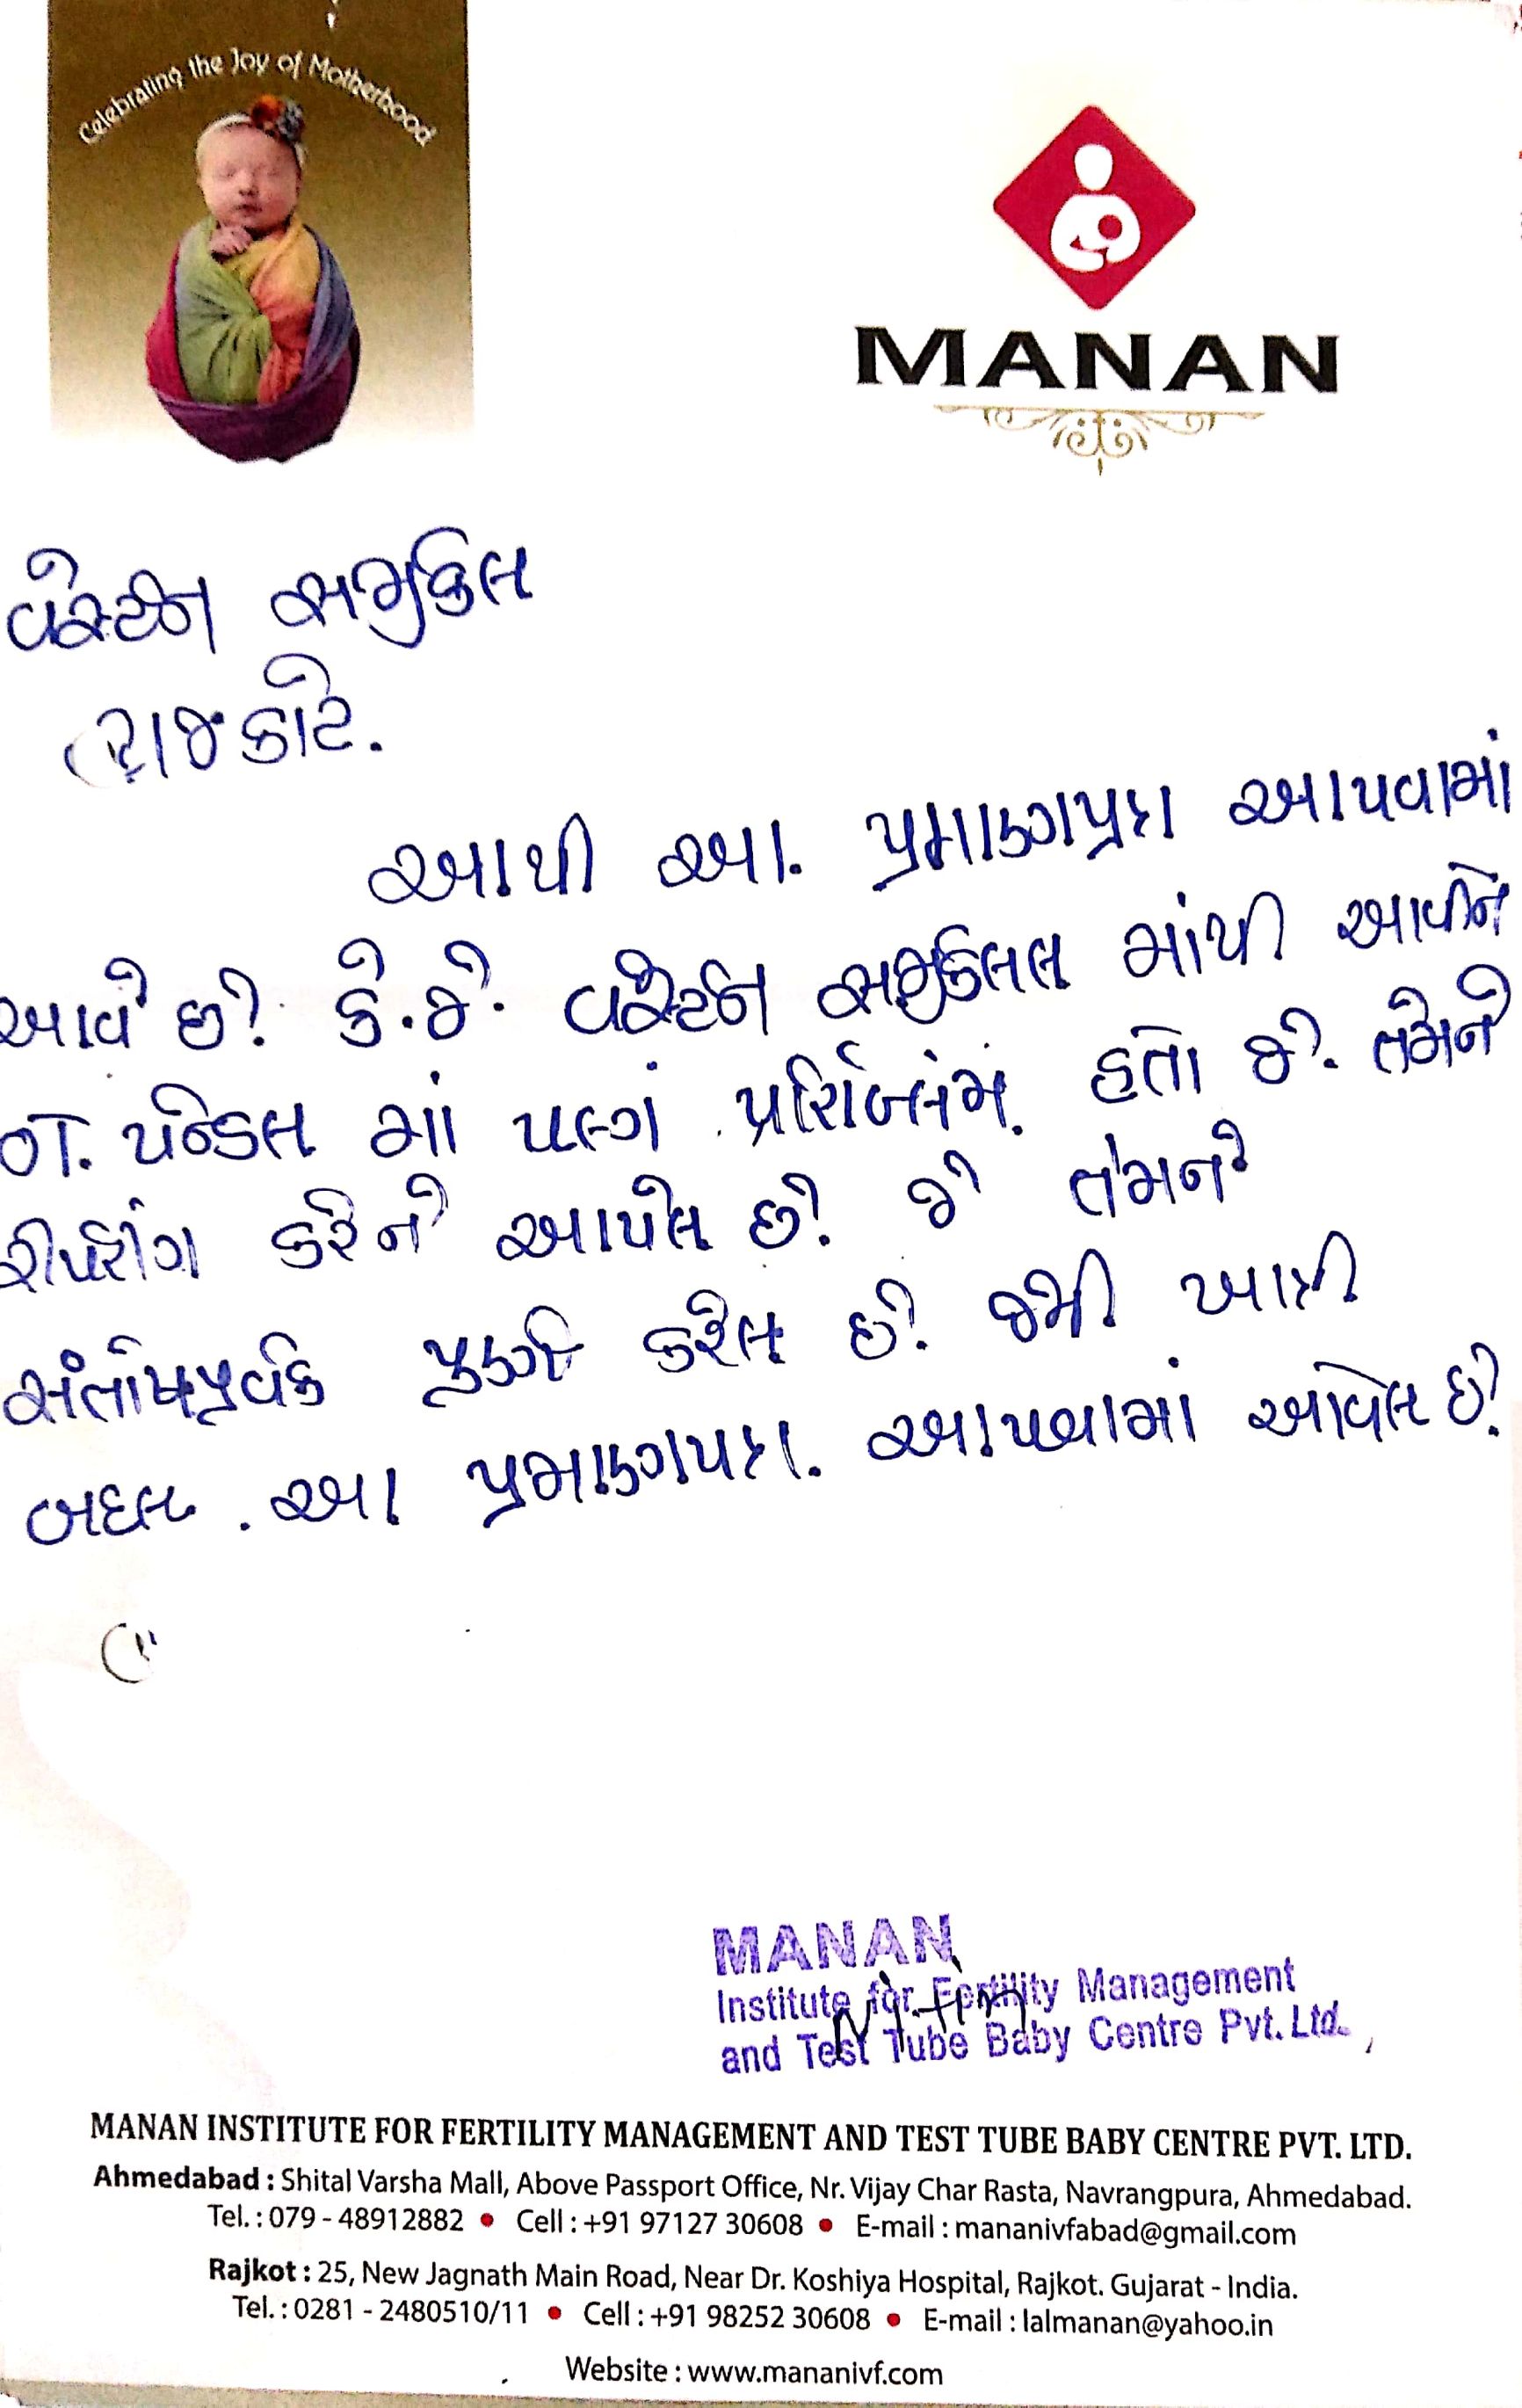 Celebrating the Joy of Motherhood
MANAN
વેસ્ટર્ન સર્જીકલ
રાજકોટ.
આથી આ. પ્રમાણપત્ર આપવામાં
આવે છે. કે.જે. વેસ્ટર્ન સર્જીકલ માંથી આવીને
OT. પેન્ડલ માં પલ્ગ પ્રોબ્લેમ. હતો જે. તેમને
રીપેરીંગ કરેને આપેલ છે. જે તેમને
સંતોષપુર્વક પુર્ણ કરેલ છે. જેની ખાત્રી
બદલ. આ પ્રમાણપત્ર. આપવામાં આવેલ છે.
MANAN
Institute for Fertility Management
and Test Tube Baby Centre Pvt. Ltd.
MANAN INSTITUTE FOR FERTILITY MANAGEMENT AND TEST TUBE BABY CENTRE PVT. LTD.
Ahmedabad : Shital Varsha Mall, Above Passport Office, Nr. Vijay Char Rasta, Navrangpura, Ahmedabad.
Tel. : 079 - 48912882 • Cell : +91 97127 30608 • E-mail : mananivfabad@gmail.com
Rajkot : 25, New Jagnath Main Road, Near Dr. Koshiya Hospital, Rajkot. Gujarat - India.
Tel. : 0281 - 2480510/11 • Cell : +91 98252 30608 • E-mail : lalmanan@yahoo.in
Website : www.mananivf.com